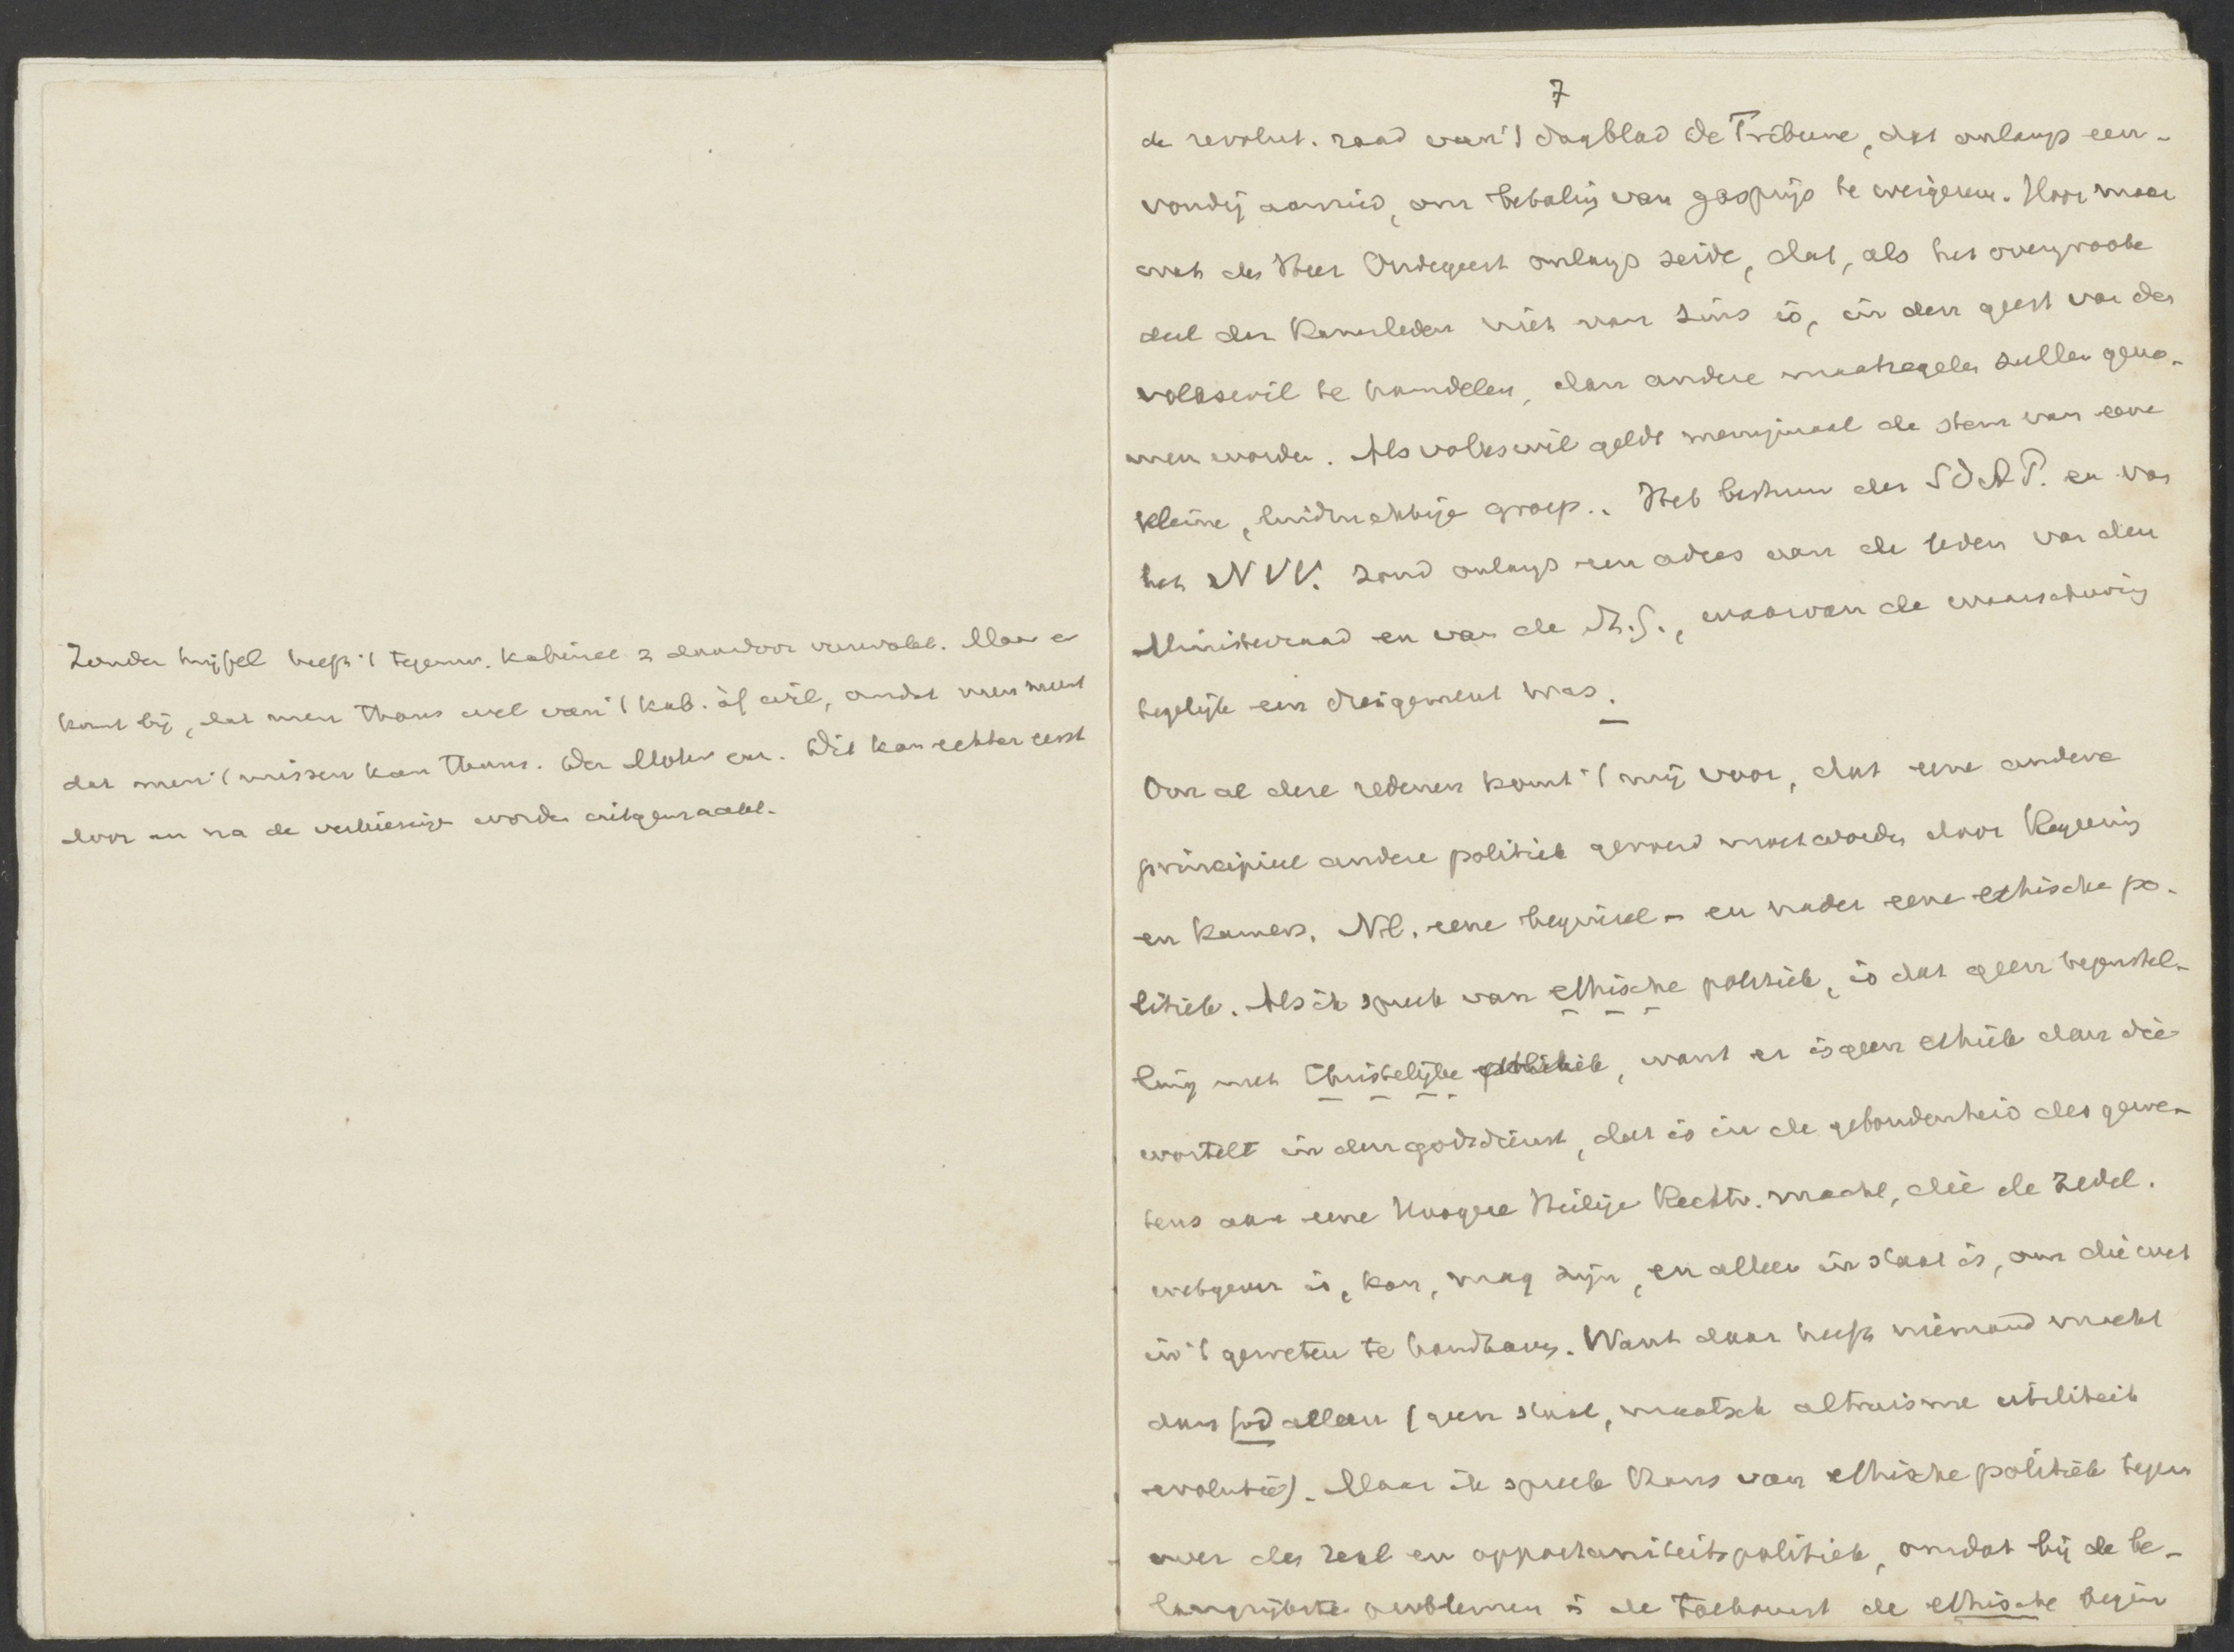 Zonder twijfel heeft 't tegenw. kabinet z daardoor verwakt. Maar er
komt bij, dat men thans wel van 't kab. af wil, omdat men meent
dat men 't missen kan thans. Der Mohr enz. Dit kan echter eerst
door en na de verkiezingen worden uitgemaakt.
7
de revolut. raad van 't dagblad de Tribune, dat onlangs een-
voudig aanried, om betaling van gasprijs te weigeren. Hoor maar
wat de Heer Oudegeest onlangs zeide, dat, als het overgroote
deel der Kamerleden niet van zins is, in den geest van den
volkswil te handelen, dan andere maatregelen zullen geno-
men worden. Als volkswil geldt menigmaal de stem van eene
kleine, luidruchtige groep. Het bestuur der SDAP. en van
het NVV. zond onlangs een adres aan de leden van den
Ministerraad en van de St. G., waarvan de waarschuwing
tegelijk een dreigement was.
Om al deze redenen komt 't mij voor, dat eene andere
principieel andere politiek gevoerd moet worden door Regeering
en Kamers. Nl. eene beginsel- en nader eene ethische po-
litiek. Als ik spreek van ethische politiek, is dat geen tegenstel-
ling met Christelijke politiek, want er is geen ethiek dan die
wortelt in den godsdienst, dat is in de gebondenheid des gewe-
tens aan eene Hoogere Heilige Rechtv. macht, die de zedel.
wetgever is, kan, mag zijn, en alleen in staat is, om die wet
in 't geweten te handhaven. Want daar heeft niemand macht
dan God alleen (geen staat, maatsch altruisme utiliteit
evolutie). Maar ik spreek thans van ethische politiek tegen
over de real en opportuniteitspolitiek, omdat bij de be-
langrijkste problemen in de toekomst de ethische begin